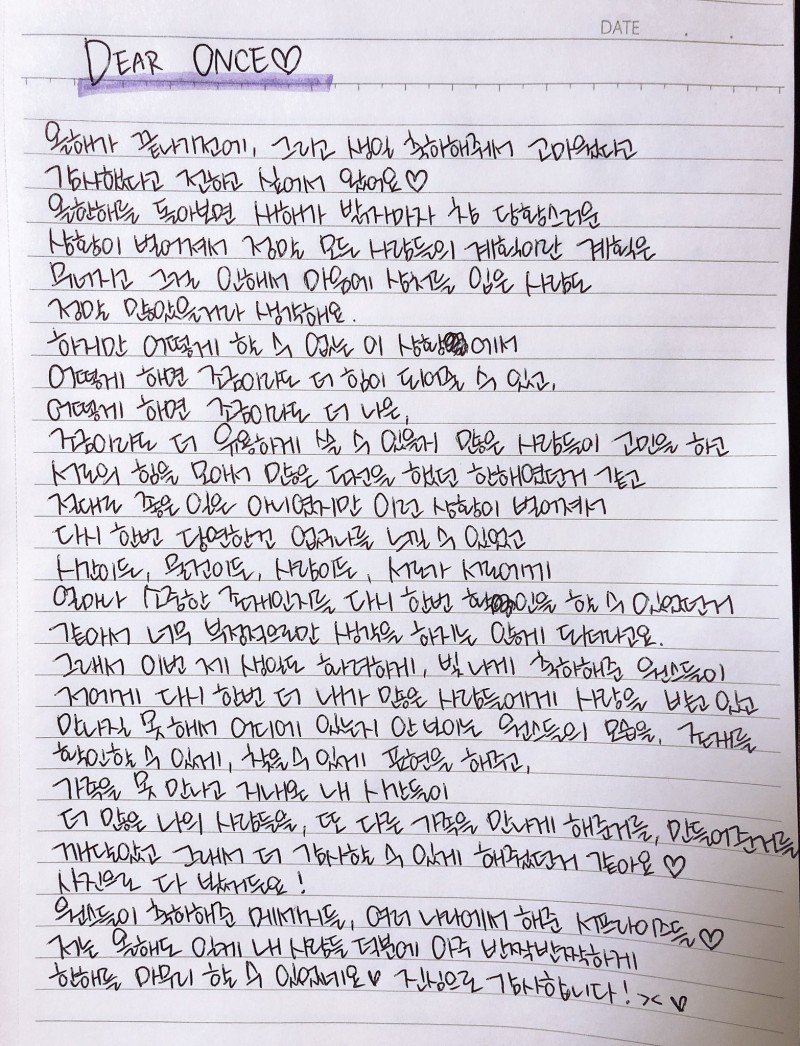 DATE . .
DEAR ONCE♡
올해가 끝나기전에, 그리고 생일 축하해줘서 고마웠다고
감사했다고 전하고 싶어서 왔어요♡
올한해를 돌아보면 새해가 밝자마자 참 당황스러운
상황이 벌어져서 정말 모든 사람들의 계획이란 계획은
무너지고 그로 인해서 마음에 상처를 입은 사람도
정말 많았을거라 생각해요.
하지만 어떻게 할 수 없는 이 상황에서
어떻게 하면 조금이라도 더 힘이 되어줄 수 있고,
어떻게 하면 조금이라도 더 나은,
조금이라도 더 유용하게 쓸 수 있을지 많은 사람들이 고민을 하고
서로의 힘을 모아서 많은 도전을 했던 한해였던거 같고
절대로 좋은 일은 아니였지만 이런 상황이 벌어져서
다시 한번 당연한건 없구나를 느낄 수 있었고
시간이든, 물건이든, 사람이든, 서로가 서로에게
얼마나 소중한 존재인지를 다시 한번 확인을 할 수 있었던거
같아서 너무 부정적으로만 생각을 하지는 않게 되더라고요.
그래서 이번 제 생일도 화려하게, 빛나게 축하해준 원스들이
저에게 다시 한번 더 내가 많은 사람들에게 사랑을 받고 있고
만나질 못해서 어디에 있는지 안보이는 원스들의 모습을, 존재를
확인할 수 있게, 찾을수있게 표현을 해주고,
가족을 못 만나고 지내온 내 시간들이
더 많은 나의 사람들을, 또 다른 가족을 만나게 해준거를, 만들어준거를
깨달았고 그래서 더 감사할 수 있게 해주었던거 같아요♡
사진으로 다 봤거든요!
원스들이 축하해준 메세지들, 여러 나라에서 해준 서프라이즈들♡
저는 올해도 이렇게 내 사람들 덕분에 아주 반짝반짝하게
한해를 마무리 할 수 있었네요♥ 진심으로 감사합니다! >< ♥